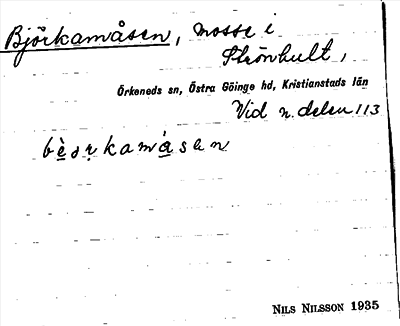 Björkamåsen, mosse i
Strönhult,
Örkeneds sn, Östra Göinge hd, Kristianstads län
Vid n. delen 113
NILS NILSSON 1935